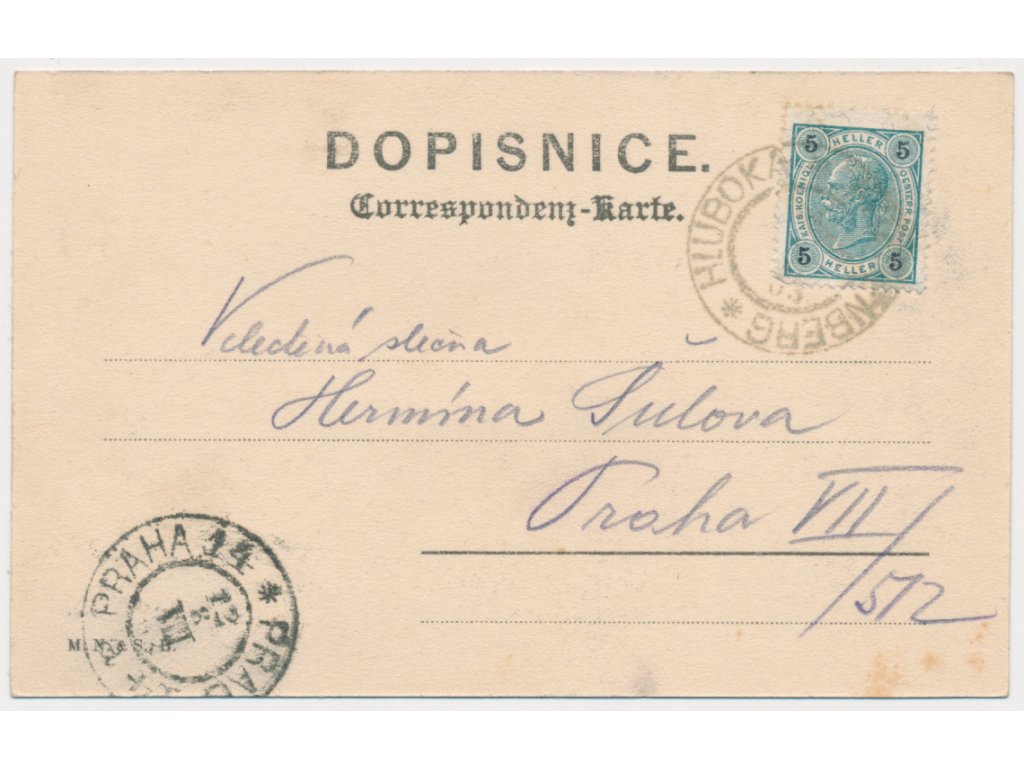 DOPISNICE.
Correspondenz-Karte.
5 HELLER 5
KAIS. KOENIGL. OESTERR. POST
5 HELLER 5
* HLUBOKA
NBERG *
Veledená slečna
Hermína Šulova
Praha VII/
/512
PRAHA 14 * PRAG
12
8
VII
M. N. & S., B.